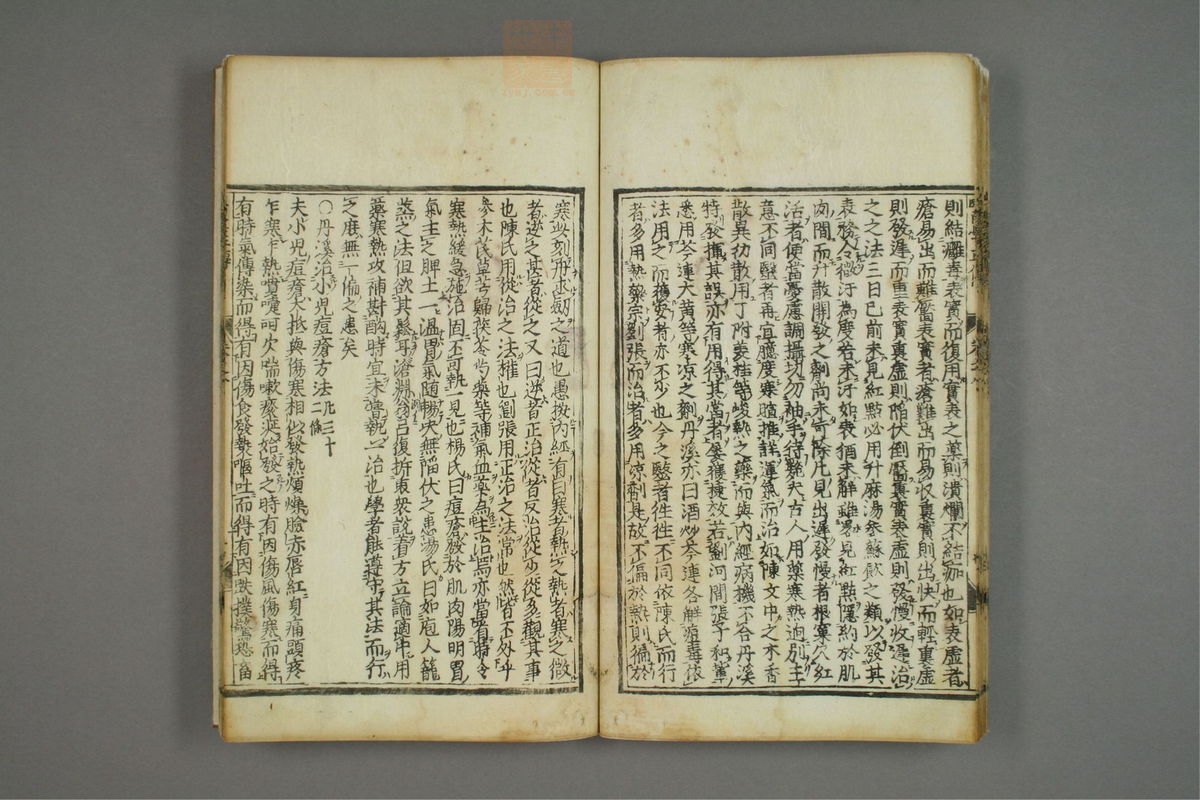 則結癰毒表實而復用實表之藥則潰爛不結痂也如表虛者
瘡易出而難靨表實者瘡難出而易收裏實則出快而輕裏虛
則發遲而重表實裏虛則陷伏倒靨裏實表虛則發慢收遲治
之之法三日已前未見紅點必用升麻湯參蘇飲之類以發其
表務令微汗為度若未汗如表猶未解雖畧見紅點隱約於肌
肉間而升散開發之劑尚未可除凡見出遲發慢者根窠穴紅
活者便當憂慮調攝切勿袖手待斃夫古人用藥寒熱逈別主
意不同醫者再宜臆度寒暄推詳運氣而治如陳文中之木香
散異功散用丁附姜桂等峻熱之藥而與內經病機不合丹溪
特發揮其誤亦有用得其當者屡獲捷效若劉河間張子和輩
悉用芩連大黃等寒凉之劑丹溪亦曰酒炒芩連各解痘毒依
法用之而獲安者亦不少也今之醫者徃徃不同依陳氏而行
者多用熱藥宗劉張而治者多用凉劑是故不偏於熱則偏於
寒此刻舟求劎之道也愚按內經有曰寒者熱之熱者寒之微
者逆之甚者從之又曰逆者正治從者反治從少從多觀其事
也陳氏用從治之法權也劉張用正治之法常也然皆不外乎
參木芪草芎歸茯苓芍藥等補氣血藥為主治焉亦當看時令
寒熱緩急施治固不可執一見也楊氏曰痘瘡發於肌肉陽明胃
氣主之脾土一温胃氣隨暢夬無陷伏之患湯氏曰如庖人籠
蒸之法但欲其鬆耳潜淵翁弓復折衷衆說着方立論適中用
藥寒熱攻補斟酌時宜未嘗執一治也學者能遵守其法而行
之庶無一偏之患矣
〇丹溪治小兒痘瘡方法凡三十二條
夫小兒痘瘡大抵與傷寒相似發熱煩燥臉赤唇紅身痛頭疼
乍寒乍熱噴嚏呵欠喘嗽痰涎始發之時有因傷風傷寒而得
有時氣傳染而得有因傷食發熱嘔吐而得有因跌撲驚恐畜